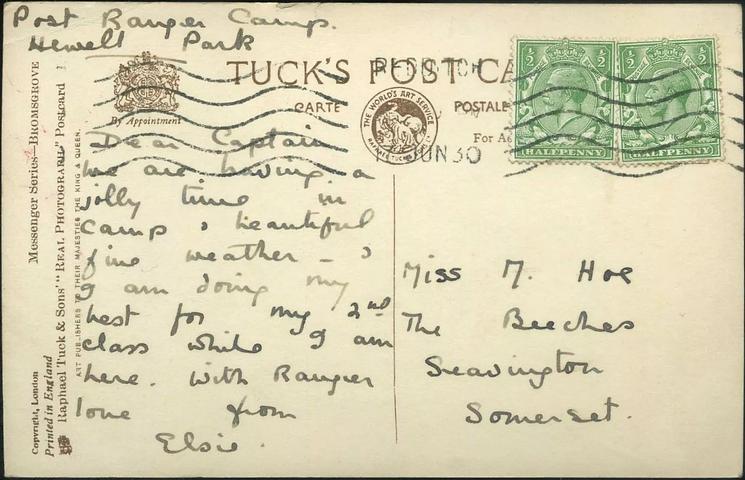 Post Ranger Camp.
Hewell Park
TUCK'S POST CA
CARTE POSTALE
By Appointment
THE WORLD'S ART SERVICE
RAPHAEL TUCK & SONS LTD
For Ad
REDDITCH
JUN 30
½ ½
HALFPENNY
½ ½
HALFPENNY
Dear Captain
We are having a
jolly time in
camp & beautiful
fine weather – &
I am doing my
best for my 2nd
class while I am
here. With Ranger
love from
Elsie.
Miss M. Hoe
The Beeches
Seavington
Somerset.
Messenger Series—BROMSGROVE
Copyright, London
Printed in England
Raphael Tuck & Sons' "REAL PHOTOGRAPH" Postcard
ART PUBLISHERS TO THEIR MAJESTIES THE KING & QUEEN.